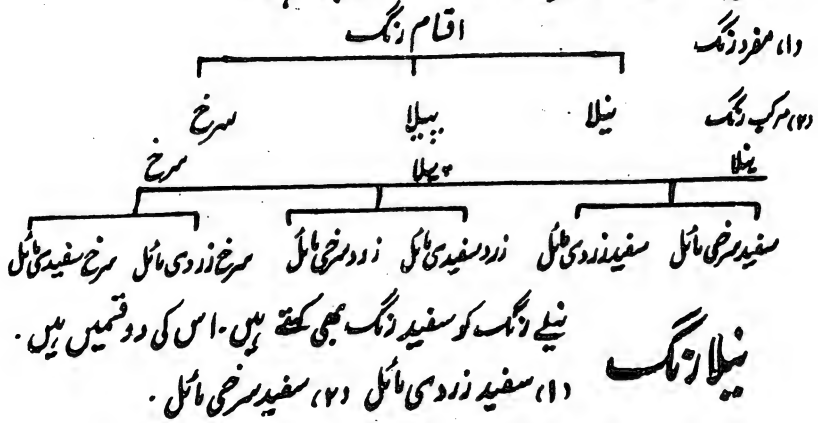 (۱) مفرد رنگ اقسام رنگ
(۲) مرکب رنگ نیلا پیلا سرخ
نیلا پیلا سرخ
سفید سرخی مائل سفید زردی مائل زرد سفیدی مائل زرد سرخی مائل سرخ زردی مائل سرخ سفیدی مائل
نیلا رنگ
نیلے رنگ کو سفید رنگ بھی کہتے ہیں۔ اس کی دو قسمیں ہیں۔
(۱) سفید زردی مائل (۲) سفید سرخی مائل۔